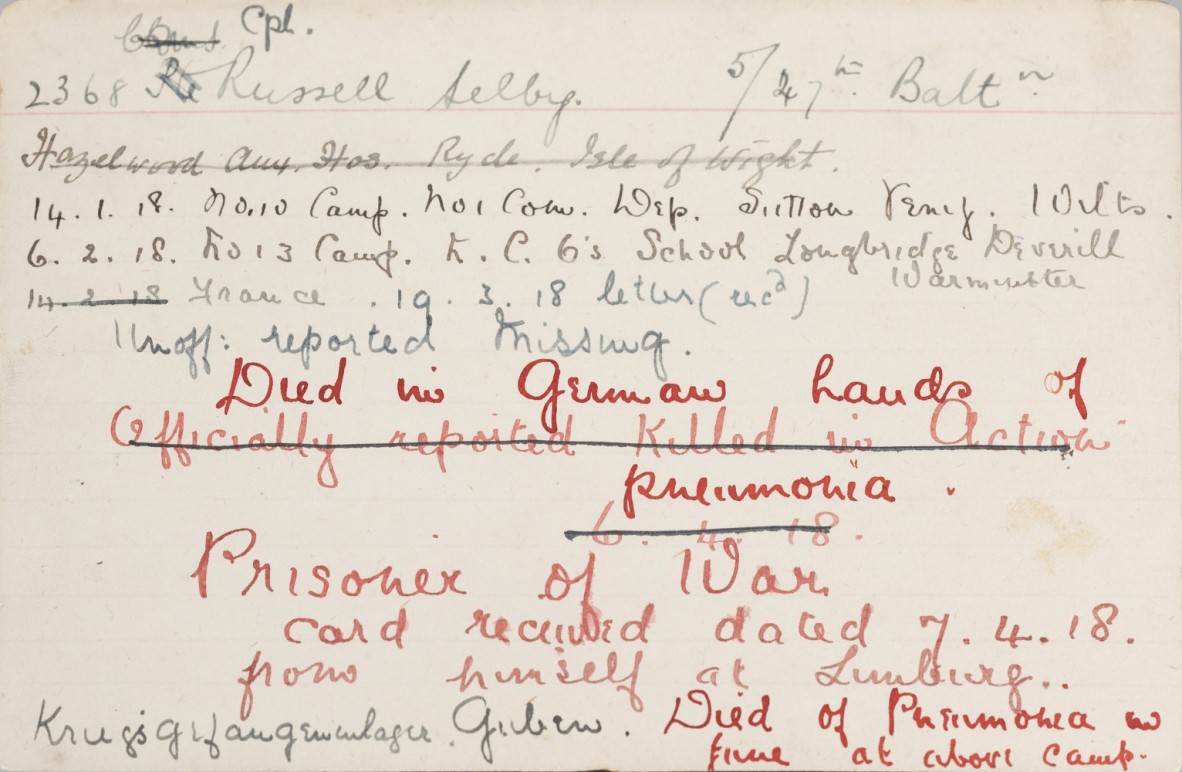 Cpl.
2368 Pte Russell Selby. 5/47th Baltn
Hazelwood Aux. Hos. Ryde. Isle of Wight.
14. 1. 18. No.10 Camp. No 1 Com. Dep. Sutton Veny. Wilts.
6. 2. 18. No 13 Camp. N. C. O's School Longbridge Deverill
Warminster
14. 2 18 France. 19. 3. 18 letter (recd)
Unoff: reported Missing.
Died in German hands of
Officially reported Killed in Action
pneumonia.
6. 4. 18.
Prisoner of War.
card received dated 7. 4. 18.
from himself at Limburg..
Kriegsgefangenenlager. Guben. Died of Pneumonia in
June at above camp.